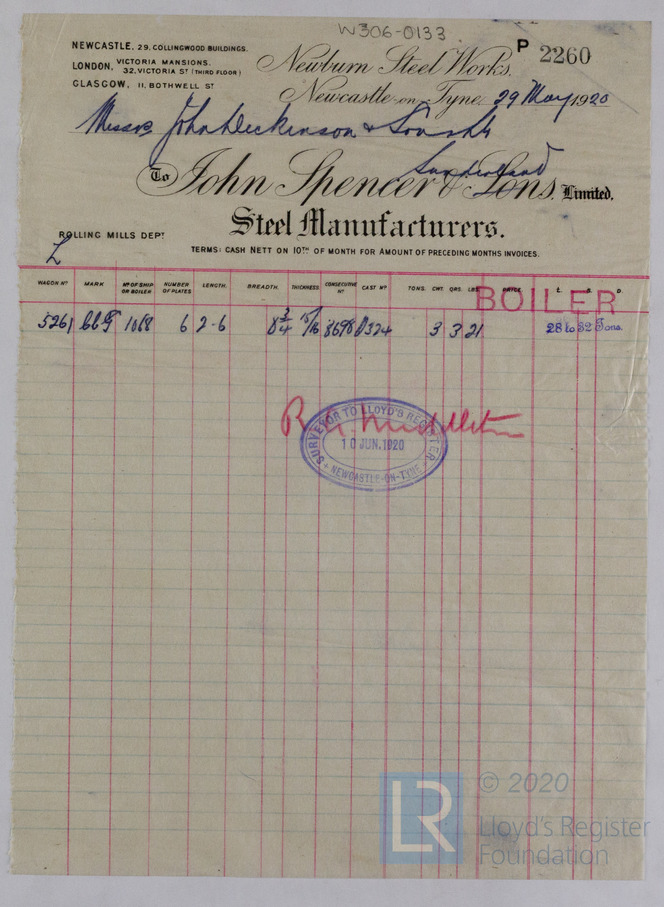 W306-0133
NEWCASTLE, 29, COLLINGWOOD BUILDINGS.
LONDON, VICTORIA MANSIONS, 32, VICTORIA ST (THIRD FLOOR)
GLASGOW, 11, BOTHWELL ST
P 2260
Newburn Steel Works,
Newcastle-on-Tyne, 29 May 1920
Messrs John Dickinson & Sons Ld
Sunderland
To John Spencer & Sons, Limited,
Steel Manufacturers.
ROLLING MILLS DEPT
L
TERMS: CASH NETT ON 10TH OF MONTH FOR AMOUNT OF PRECEDING MONTHS INVOICES.
WAGON No MARK No OF SHIP OR BOILER NUMBER OF PLATES LENGTH. BREADTH. THICKNESS CONSECUTIVE No CAST No TONS. CWT. QRS. LBS. PRICE. £. S. D.
BOILER
5261 1068 6 2-6 8 3/4 15/16 8698 3 3 21 28 to 32 Tons.
R. Middleton
SURVEYOR TO LLOYD'S REGISTER
10 JUN. 1920
NEWCASTLE-ON-TYNE
LR
© 2020
Lloyd's Register
Foundation